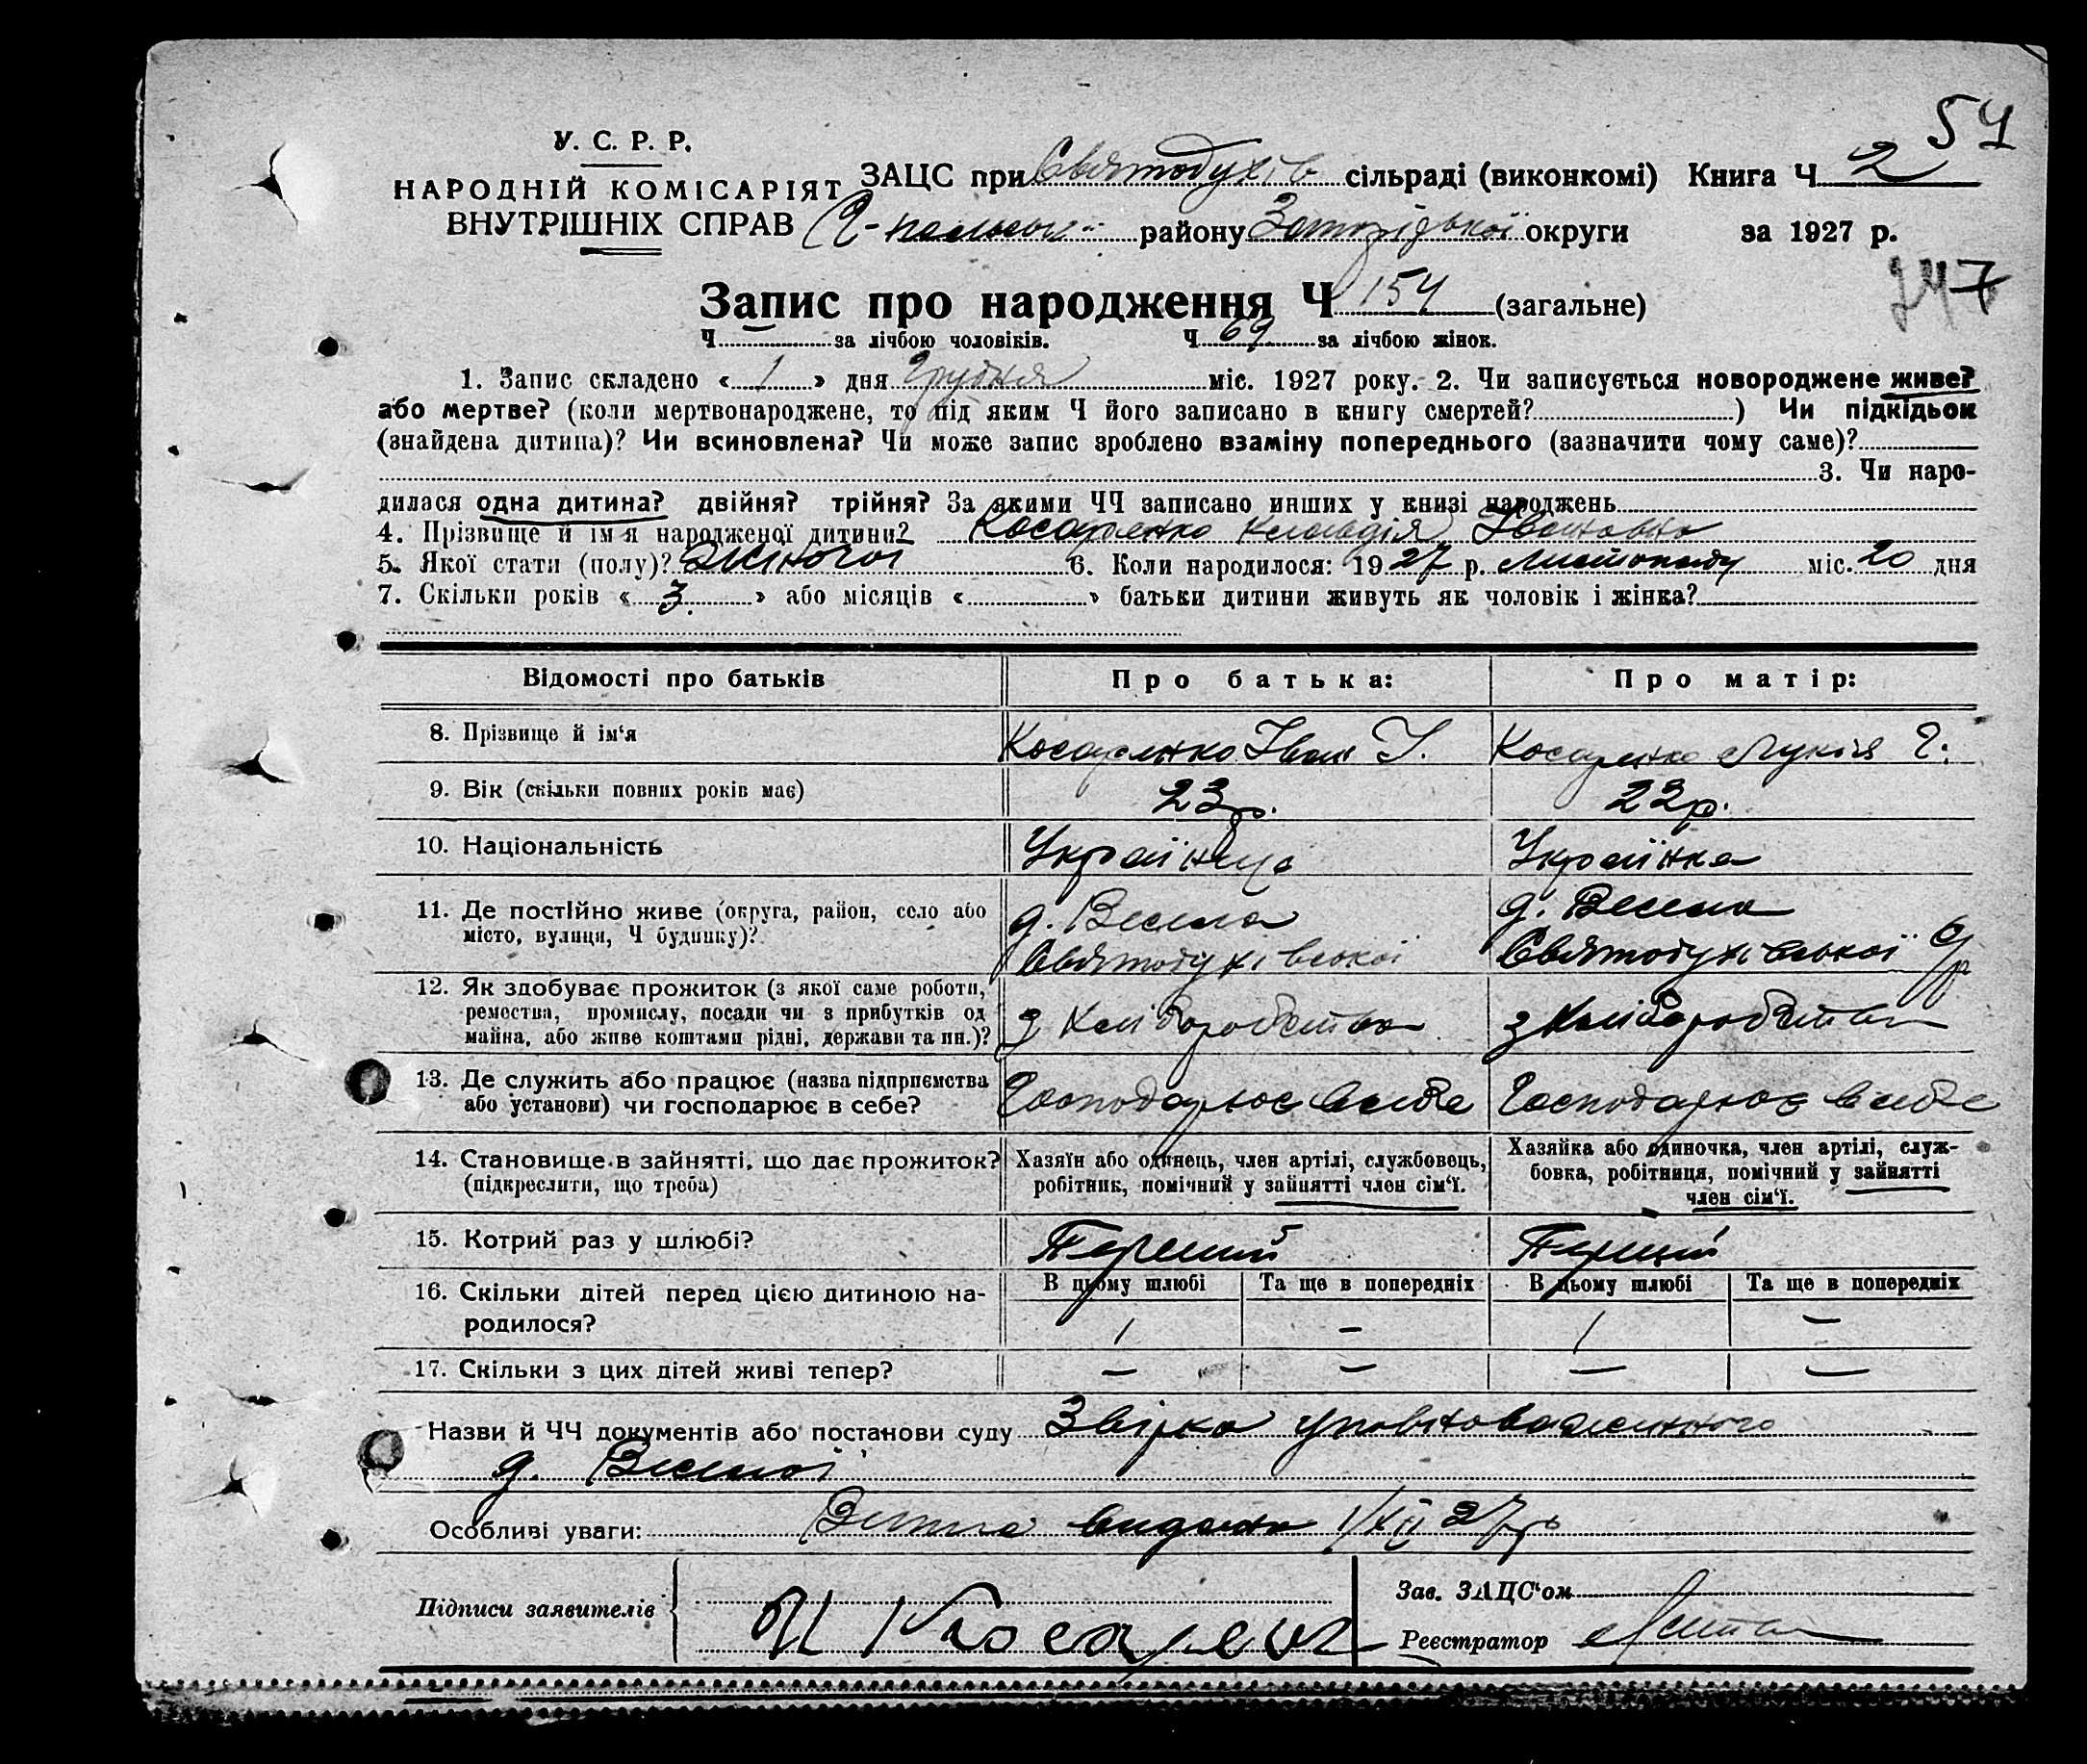 54
У. С. Р. Р.
НАРОДНІЙ КОМІСАРІЯТ
ВНУТРІШНІХ СПРАВ
ЗАЦС при Святодухів сільраді (виконкомі) Книга Ч 2
району Запорізької округи за 1927 р.
Запис про народження Ч 154 (загальне)
Ч — за лічбою чоловіків. Ч 69 за лічбою жінок.
1. Запис складено « 1 » дня Грудня міс. 1927 року. 2. Чи записується новороджене живе?
або мертве? (коли мертвонароджене, то під яким Ч його записано в книгу смертей?) Чи підкідьок
(знайдена дитина)? Чи всиновлена? Чи може запис зроблено взаміну попереднього (зазначити чому саме)?
3. Чи наро-
дилася одна дитина? двійня? трійня? За якими ЧЧ записано инших у книзі народжень
4. Прізвище й ім'я народженої дитини? Косаренко Клавдія Івановна
5. Якої стати (полу)? Жіночої 6. Коли народилося: 1927 р. Листопаду міс. 20 дня
7. Скільки років « 3 » або місяців « » батьки дитини живуть як чоловік і жінка?
Відомості про батьків Про батька: Про матір:
8. Прізвище й ім'я Косаренко Іван І. Косаренко Лукія Г.
9. Вік (скільки повних років має) 23 р. 22 р.
10. Національність Українець Українка
11. Де постійно живе (округа, район, село або місто, вулиця, Ч будинку)? д. Весела Святодухівської д. Весела Святодухівської с/р
12. Як здобуває прожиток (з якої саме роботи, ремества, промислу, посади чи з прибутків од майна, або живе коштами рідні, держави та ин.)? з хліборобства з хліборобства
13. Де служить або працює (назва підприємства або установи) чи господарює в себе? Господарює в себе Господарює в себе
14. Становище в зайнятті, що дає прожиток? (підкреслити, що треба) Хазяїн або одинець, член артілі, службовець, робітник, помічний у зайнятті член сім'ї. Хазяйка або одиночка, член артілі, служ-бовка, робітниця, помічний у зайнятті член сім'ї.
15. Котрий раз у шлюбі? Перший Перший
В цьому шлюбі Та ще в попередніх В цьому шлюбі Та ще в попередніх
16. Скільки дітей перед цією дитиною на-родилося? 1 — 1 —
17. Скільки з цих дітей живі тепер? — — — —
Назви й ЧЧ документів або постанови суду Звірка уповноваженного
д. Веселої
Особливі уваги: видана 1/XII 27 р.
Підписи заявителів И Косарен
Зав. ЗАЦС'ом
Реєстратор